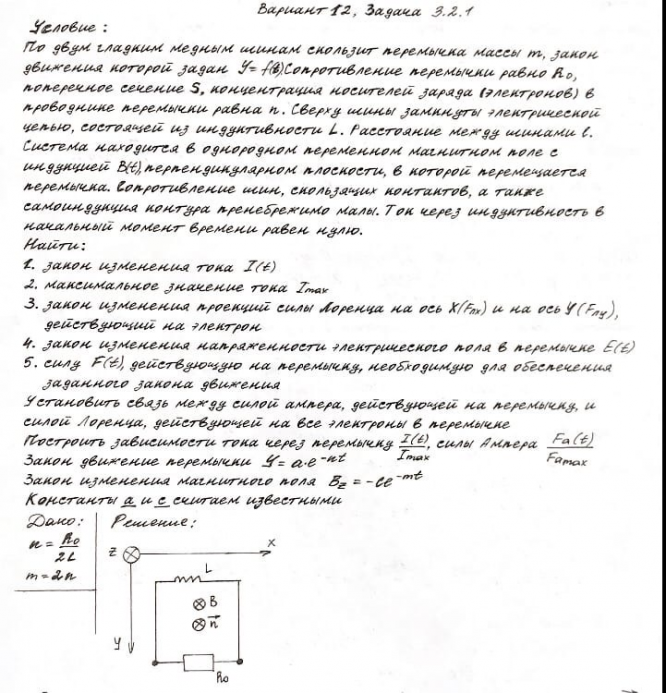 Вариант 12, Задача 3.2.1
Условие:
По двум гладким медным шинам скользит перемычка массы m, закон
движения которой задан y=f(t) Сопротивление перемычки равно R₀,
поперечное сечение S, концентрация носителей заряда (электронов) в
проводнике перемычки равна n. Сверху шины замкнуты электрической
цепью, состоящей из индуктивности L. Расстояние между шинами l.
Система находится в однородном переменном магнитном поле с
индукцией B(t), перпендикулярном плоскости, в которой перемещается
перемычка. Сопротивление шин, скользящих контактов, а также
самоиндукция контура пренебрежимо малы. Ток через индуктивность в
начальный момент времени равен нулю.
Найти:
1. закон изменения тока I(t)
2. максимальное значение тока Imax
3. закон изменения проекций силы Лоренца на ось X(Fлx) и на ось Y(Fлy),
действующий на электрон
4. закон изменения напряженности электрического поля в перемычке E(t)
5. силу F(t), действующую на перемычку, необходимую для обеспечения
заданного закона движения
Установить связь между силой ампера, действующей на перемычку, и
силой Лоренца, действующей на все электроны в перемычке
Построить зависимости тока через перемычку I(t)/Imax, силы Ампера Fa(t)/Famax
Закон движение перемычки y=a·e^-nt
Закон изменения магнитного поля Bz=-ce^-mt
Константы a и c считаем известными
Дано: Решение:
n=R₀/2L
m=2n
z x
L
B
n
y
R₀